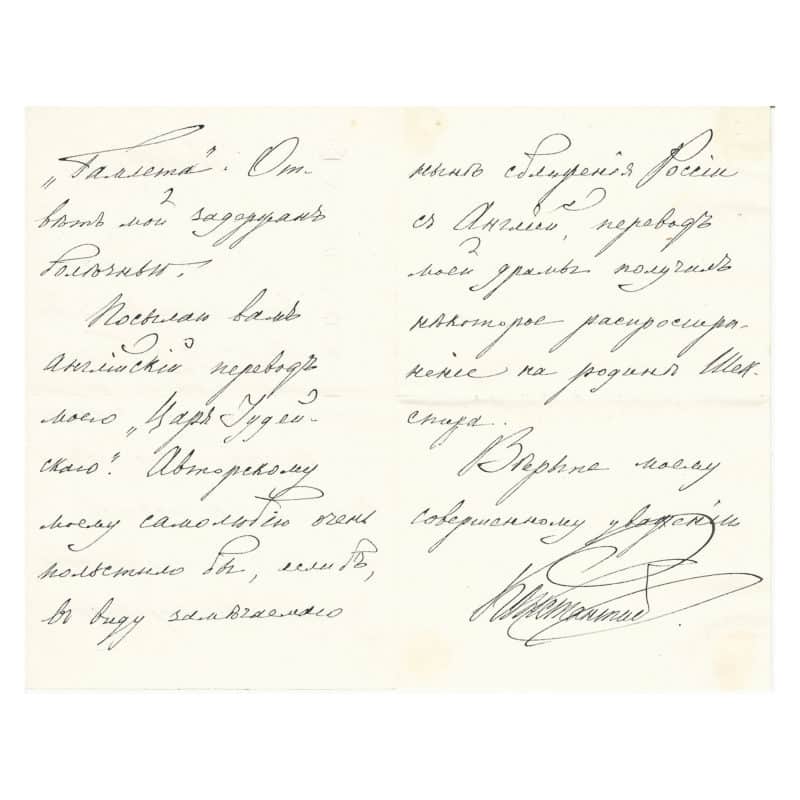 „Гамлета“. От-
вѣтъ мой задержанъ
болѣзнью.
Посылаю вамъ
англійскій переводъ
моего „Царя Іудей-
скаго“. Авторскому
моему самолюбію очень
польстило бы, если бъ,
въ виду замѣчаемаго
нынѣ сближенія Россіи
съ Англіей, переводъ
моей драмы получилъ
нѣкоторое распростра-
неніе на родинѣ Шек-
спира.
Вѣрьте моему
совершенному уваженію
Константин